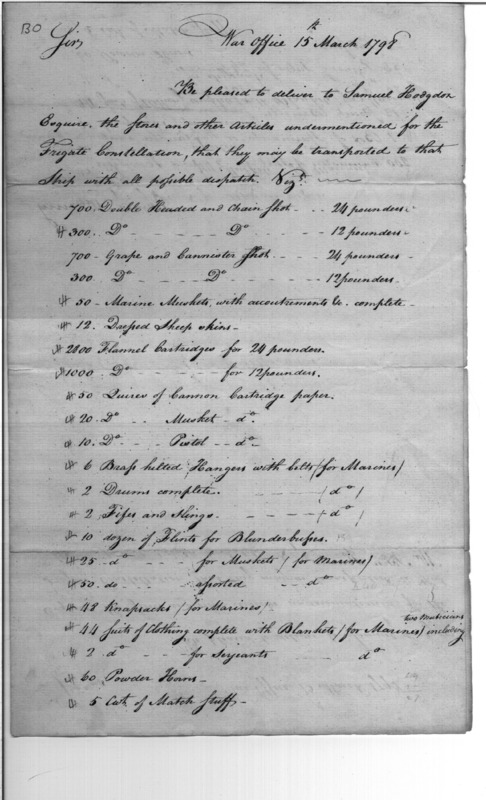 BO
Sir,
War Office 15th March 1798
Be pleased to deliver to Samuel Hodgdon
Esquire, the Stores and other Articles undermentioned for the
Frigate Constellation, that they may be transported to that
Ship with all possible dispatch. Vizt.
700 Double Headed and Chain Shot - - 24 pounders
# 300. Do - - - Do - - - 12 pounders
700 - Grape and Cannister Shot - - - 24 pounders
300 Do - - - Do - - - 12 pounders
# 50 - Marine Muskets, with accoutrements &c. complete
# 12. Dressed Sheep skins -
# 2800 Flannel Cartridges for 24 pounders.
# 1000 Do - - - for 12 pounders.
# 50 Quires of Cannon Cartridge paper.
# 20 Do - - Musket - do.
# 10. Do - - Pistol - do. -
# 6 Brass hilted Hangers with belts (for Marines)
# 2 Drums complete. - - - (do)
# 2 Fifes and Slings. - - - (do)
# 10 dozen of Flints for Blunderbusses.
# 25 do - - - for Muskets (for Marines)
# 50 do - - - assorted - - do
# 48 Knapsacks (for Marines)
# 44 Suits of Clothing complete with Blankets (for Marines) including two Musicians
# 2 do - - - for Serjeants - - - do
# 60 Powder Horns -
# 5 Cwt. of Match Stuff -